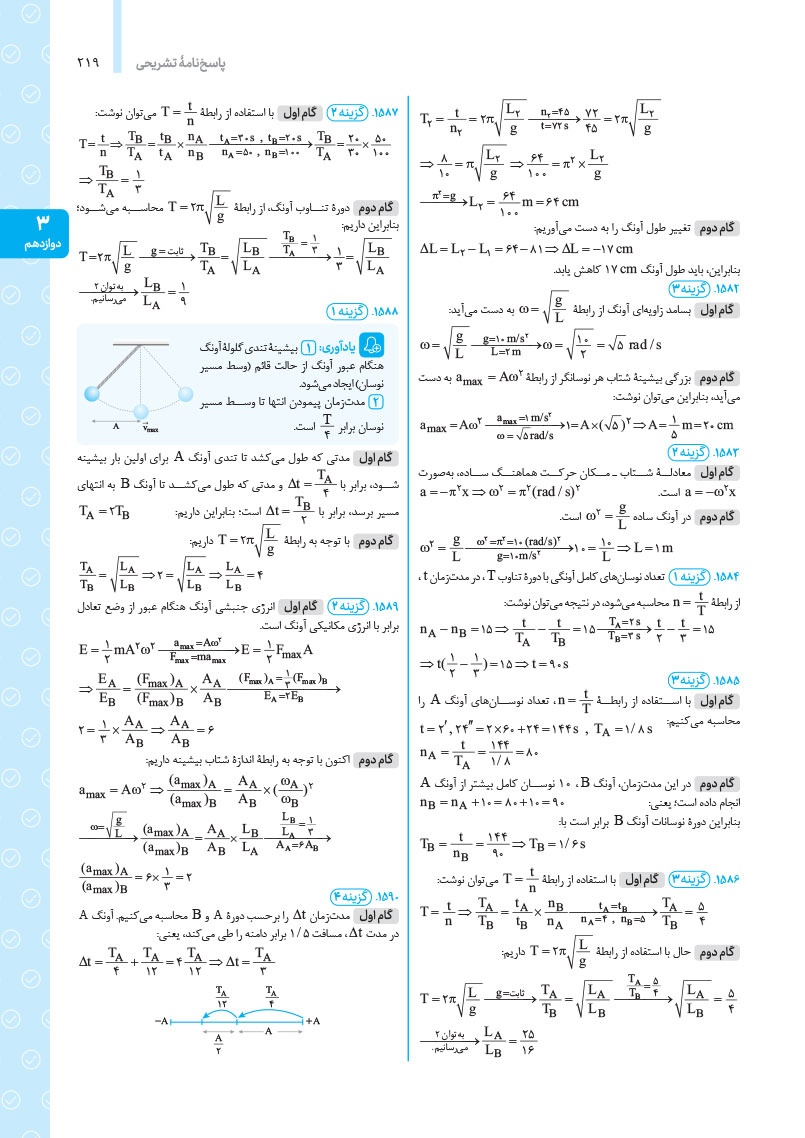 پاسخ‌نامهٔ تشریحی
۲۱۹
۳
دوازدهم
T₂ = t/n₂ = ۲π√(L₂/g) —(n₂=۴۵, t=۷۲ s)→ ۷۲/۴۵ = ۲π√(L₂/g)
⇒ ۸/۱۰ = π√(L₂/g) ⇒ ۶۴/۱۰۰ = π² × L₂/g
—(π²=g)→ L₂ = ۶۴/۱۰۰ m = ۶۴ cm
گام دوم تغییر طول آونگ را به دست می‌آوریم:
ΔL = L₂ − L₁ = ۶۴ − ۸۱ ⇒ ΔL = −۱۷ cm
بنابراین، باید طول آونگ ۱۷ cm کاهش یابد.
۱۵۸۲. گزینه ۳
گام اول بسامد زاویه‌ای آونگ از رابطهٔ ω = √(g/L) به دست می‌آید:
ω = √(g/L) —(g=۱۰ m/s², L=۲ m)→ ω = √(۱۰/۲) = √۵ rad/s
گام دوم بزرگی بیشینهٔ شتاب هر نوسانگر از رابطهٔ a_max = Aω² به دست
می‌آید، بنابراین می‌توان نوشت:
a_max = Aω² —(a_max=۱ m/s², ω=√۵ rad/s)→ ۱ = A×(√۵)² ⇒ A = ۱/۵ m = ۲۰ cm
۱۵۸۳. گزینه ۲
گام اول معادلـــهٔ شـــتاب ـ مـــکان حرکـــت هماهنـــگ ســـاده، به‌صورت
a = −ω²x است. a = −π²x ⇒ ω² = π² (rad/s)²
گام دوم در آونگ ساده ω² = g/L است.
ω² = g/L —(ω²=π²=۱۰ (rad/s)², g=۱۰m/s²)→ ۱۰ = ۱۰/L ⇒ L = ۱m
۱۵۸۴. گزینه ۱ تعداد نوسان‌های کامل آونگی با دورهٔ تناوب T، در مدت‌زمان t،
از رابطهٔ n = t/T محاسبه می‌شود، در نتیجه می‌توان نوشت:
n_A − n_B = ۱۵ ⇒ t/T_A − t/T_B = ۱۵ —(T_A=۲ s, T_B=۳ s)→ t/۲ − t/۳ = ۱۵
⇒ t(۱/۲ − ۱/۳) = ۱۵ ⇒ t = ۹۰s
۱۵۸۵. گزینه ۳
گام اول با اســـتفاده از رابطـــهٔ n = t/T، تعداد نوســـان‌های آونگ A را
محاسبه می‌کنیم: t = ۲′, ۲۴″ = ۲×۶۰+۲۴ = ۱۴۴s , T_A = ۱/۸ s
n_A = t/T_A = ۱۴۴/۱/۸ = ۸۰
گام دوم در این مدت‌زمان، آونگ B، ۱۰ نوســـان کامل بیشتر از آونگ A
انجام داده است؛ یعنی: n_B = n_A + ۱۰ = ۸۰ + ۱۰ = ۹۰
بنابراین دورهٔ نوسانات آونگ B برابر است با:
T_B = t/n_B = ۱۴۴/۹۰ ⇒ T_B = ۱/۶ s
۱۵۸۶. گزینه ۳ گام اول با استفاده از رابطهٔ T = t/n می‌توان نوشت:
T = t/n ⇒ T_A/T_B = t_A/t_B × n_B/n_A —(t_A=t_B, n_A=۴ , n_B=۵)→ T_A/T_B = ۵/۴
گام دوم حال با استفاده از رابطهٔ T = ۲π√(L/g) داریم:
T = ۲π√(L/g) —(ثابت=g)→ T_A/T_B = √(L_A/L_B) —(T_A/T_B = ۵/۴)→ √(L_A/L_B) = ۵/۴
—(به توان ۲ می‌رسانیم.)→ L_A/L_B = ۲۵/۱۶
۱۵۸۷. گزینه ۲ گام اول با استفاده از رابطهٔ T = t/n می‌توان نوشت:
T = t/n ⇒ T_B/T_A = t_B/t_A × n_A/n_B —(t_A=۳۰s , t_B=۲۰s, n_A=۵۰ , n_B=۱۰۰)→ T_B/T_A = ۲۰/۳۰ × ۵۰/۱۰۰
⇒ T_B/T_A = ۱/۳
گام دوم دورهٔ تنـــاوب آونگ، از رابطهٔ T = ۲π√(L/g) محاســـبه می‌شـــود؛
بنابراین داریم:
T = ۲π√(L/g) —(ثابت = g)→ T_B/T_A = √(L_B/L_A) —(T_B/T_A = ۱/۳)→ ۱/۳ = √(L_B/L_A)
—(به توان ۲ می‌رسانیم.)→ L_B/L_A = ۱/۹
۱۵۸۸. گزینه ۱
یادآوری: ۱ بیشینهٔ تندی گلولهٔ آونگ
هنگام عبور آونگ از حالت قائم (وسط مسیر
نوسان) ایجاد می‌شود.
۲ مدت‌زمان پیمودن انتها تا وســـط مسیر
نوسان برابر T/۴ است.
A
v_max
گام اول مدتی که طول می‌کشد تا تندی آونگ A برای اولین بار بیشینه
شـــود، برابر با Δt = T_A/۴ و مدتی که طول می‌کشـــد تا آونگ B به انتهای
مسیر برسد، برابر با Δt = T_B/۲ است؛ بنابراین داریم: T_A = ۲T_B
گام دوم با توجه به رابطهٔ T = ۲π√(L/g) داریم:
T_A/T_B = √(L_A/L_B) ⇒ ۲ = √(L_A/L_B) ⇒ L_A/L_B = ۴
۱۵۸۹. گزینه ۲ گام اول انرژی جنبشی آونگ هنگام عبور از وضع تعادل
برابر با انرژی مکانیکی آونگ است.
E = ۱/۲ mA²ω² —(a_max=Aω², F_max=ma_max)→ E = ۱/۲ F_max A
⇒ E_A/E_B = (F_max)_A/(F_max)_B × A_A/A_B —((F_max)_A = ۱/۳ (F_max)_B, E_A=۲E_B)→
۲ = ۱/۳ × A_A/A_B ⇒ A_A/A_B = ۶
گام دوم اکنون با توجه به رابطهٔ اندازهٔ شتاب بیشینه داریم:
a_max = Aω² ⇒ (a_max)_A/(a_max)_B = A_A/A_B × (ω_A/ω_B)²
—(ω=√(g/L))→ (a_max)_A/(a_max)_B = A_A/A_B × L_B/L_A —(L_B/L_A = ۱/۳, A_A=۶A_B)→
(a_max)_A/(a_max)_B = ۶× ۱/۳ = ۲
۱۵۹۰. گزینه ۴
گام اول مدت‌زمان Δt را برحسب دورهٔ A و B محاسبه می‌کنیم. آونگ A
در مدت Δt، مسافت ۱/۵ برابر دامنه را طی می‌کند، یعنی:
Δt = T_A/۴ + T_A/۱۲ = ۴ T_A/۱۲ ⇒ Δt = T_A/۳
T_A/۱۲ T_A/۴
−A +A
A/۲ A